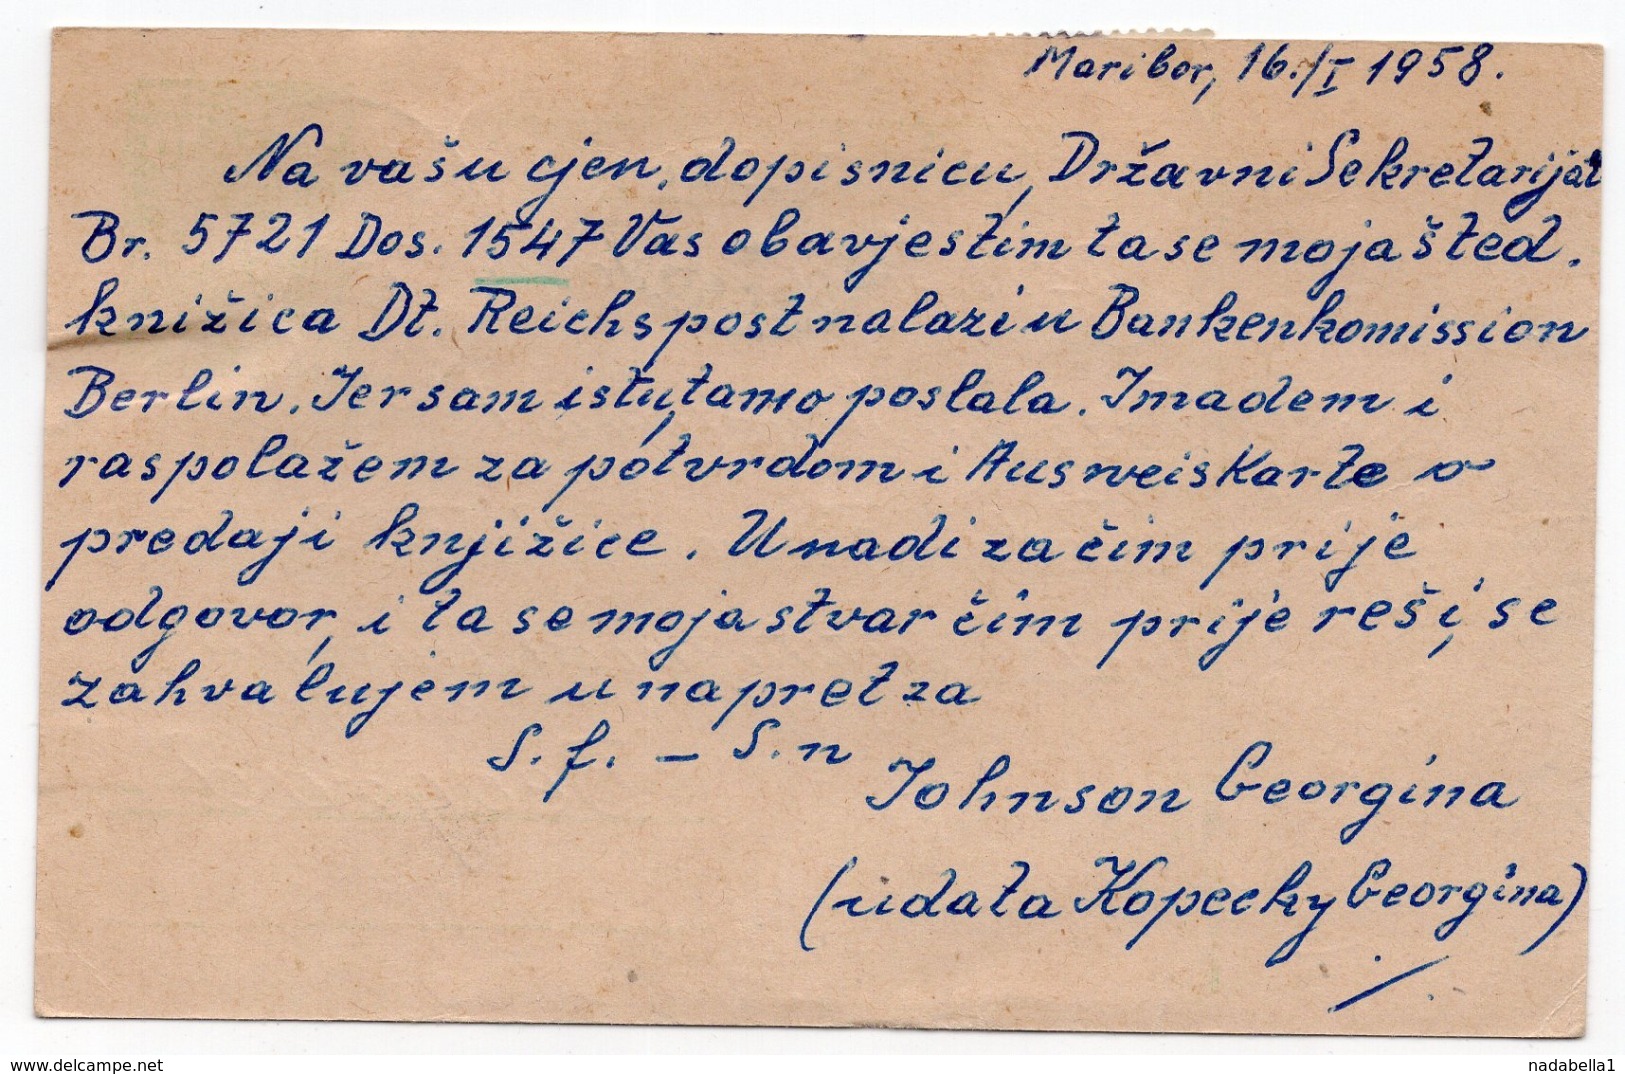 Maribor, 16./I 1958.
Na vašu cjen. dopisnicu, Državni Sekretarijat
Br. 5721 Dos. 1547 Vas obavjestim ta se moja šted.
knižica Dt. Reichspost nalazi u Bankenkomission
Berlin. Jer sam istu, tamo poslala. Imadem i
raspolažem za potvrdom i Ausweiskarte o
predaji knjižice. U nadi za čim prije
odgovor, i ta se moja stvar čim prije reši, se
zahvalujem u napret za
S. f. – S. n
Johnson Georgina
(udata Kopecky Georgina)
nadabella1